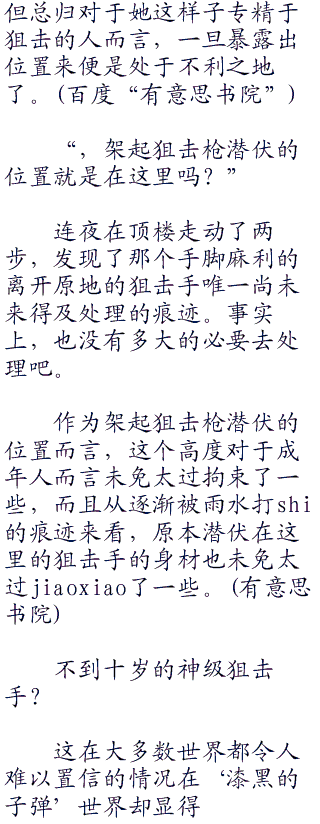 但总归对于她这样子专精于
狙击的人而言，一旦暴露出
位置来便是处于不利之地
了。(百度“有意思书院”)
“，架起狙击枪潜伏的
位置就是在这里吗？”
连夜在顶楼走动了两
步，发现了那个手脚麻利的
离开原地的狙击手唯一尚未
来得及处理的痕迹。事实
上，也没有多大的必要去处
理吧。
作为架起狙击枪潜伏的
位置而言，这个高度对于成
年人而言未免太过拘束了一
些，而且从逐渐被雨水打shi
的痕迹来看，原本潜伏在这
里的狙击手的身材也未免太
过jiaoxiao了一些。(有意思
书院)
不到十岁的神级狙击
手？
这在大多数世界都令人
难以置信的情况在‘漆黑的
子弹’世界却显得